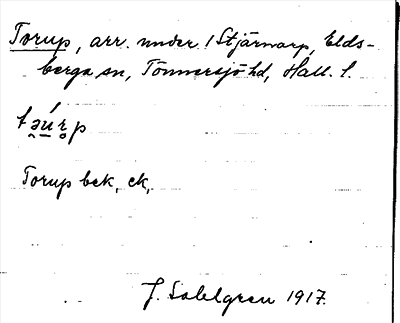 Torup, arr. under 1 Stjärnarp, Elds-
berga sn, Tönnersjö hd, Hall. l.
Torup bek. ek.
J. Sahlgren 1917.